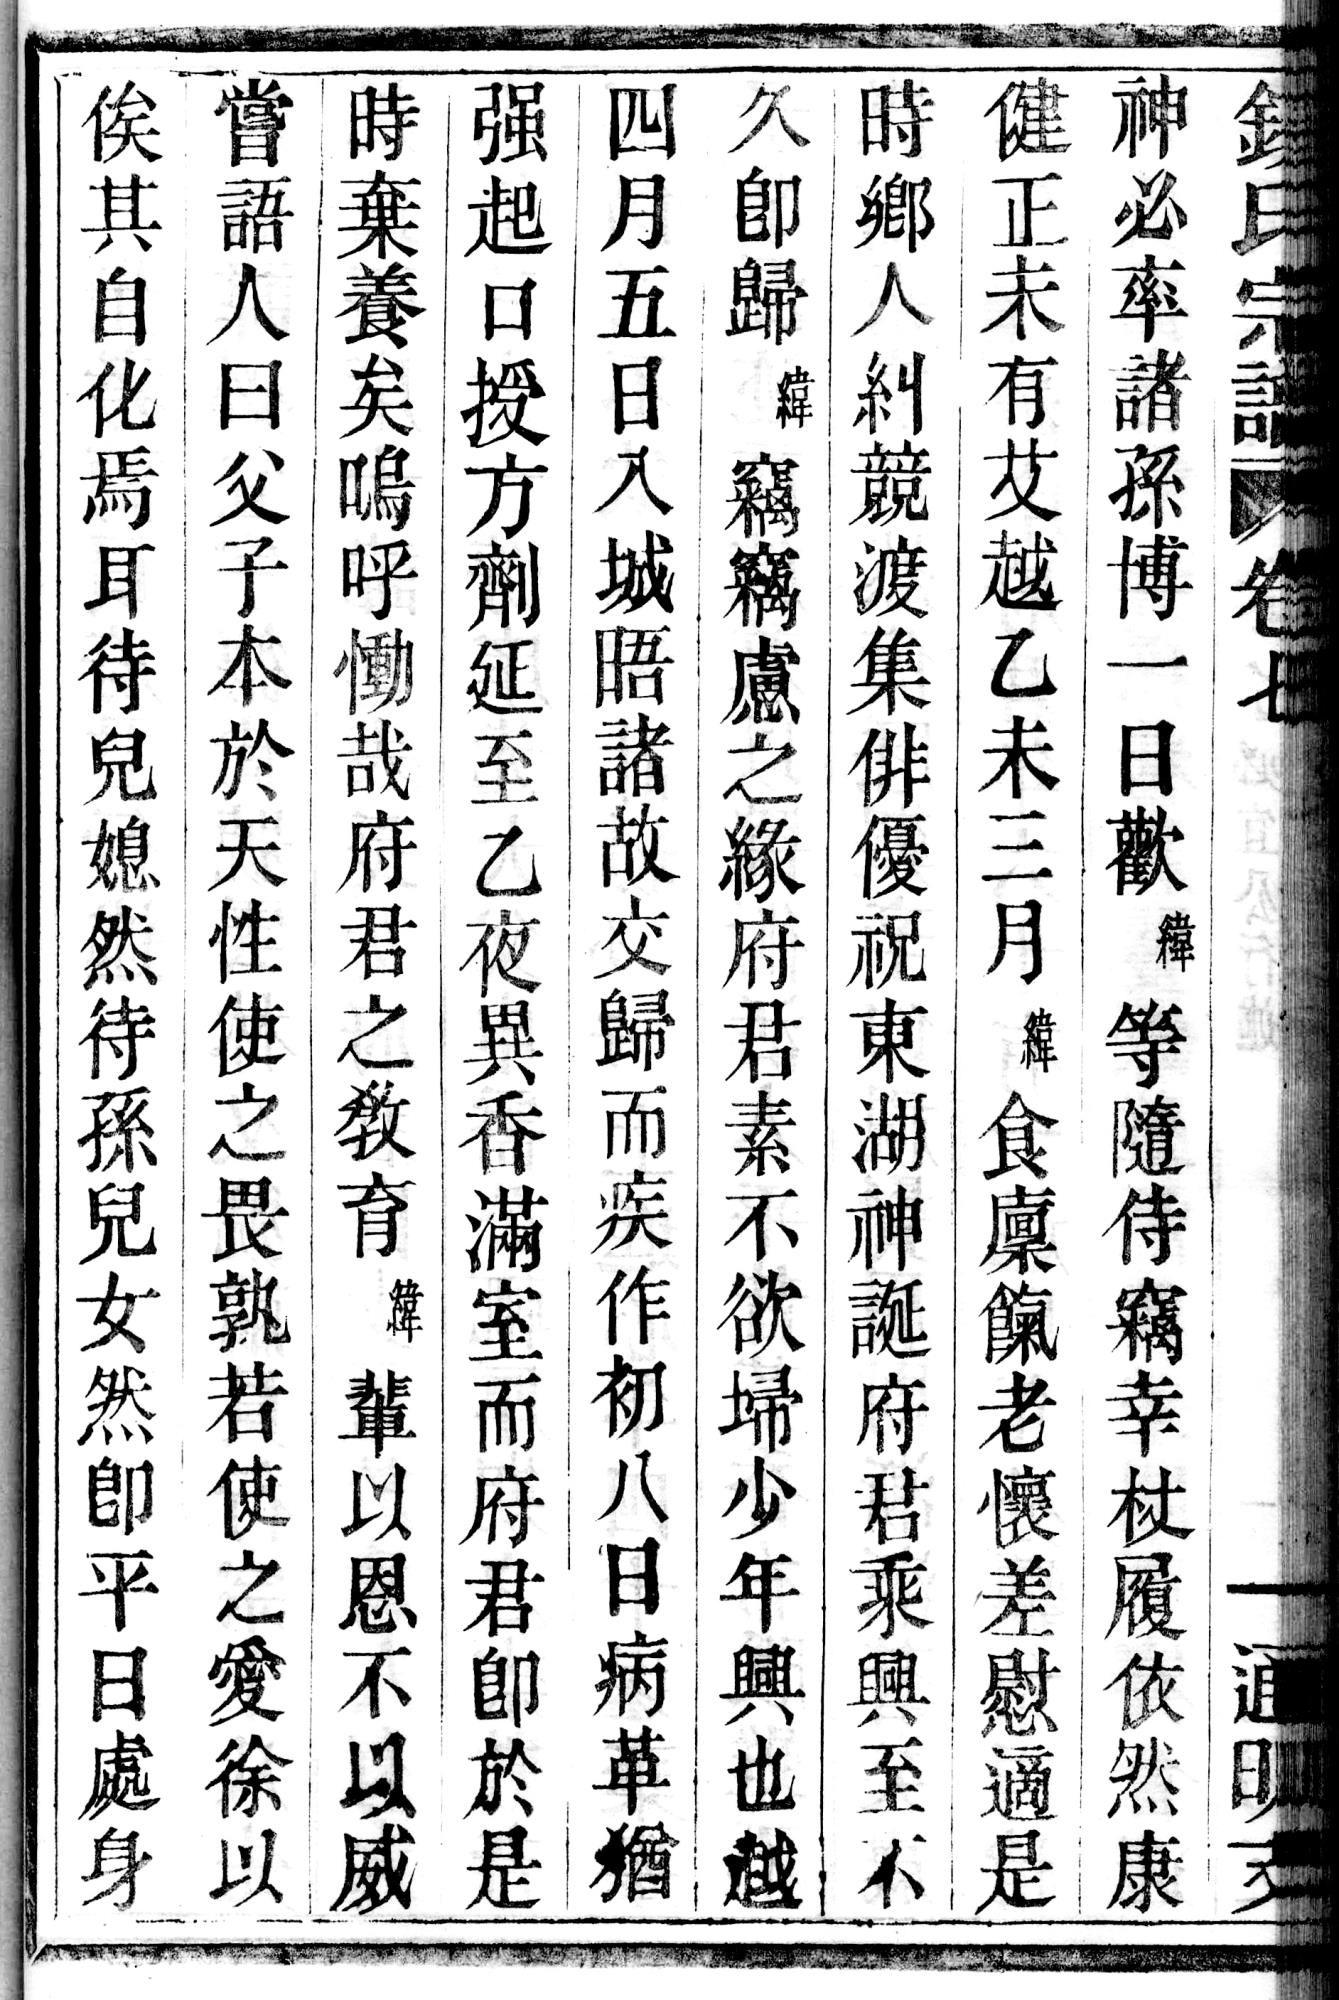 氏宗譜 卷七 通明支
神必率諸孫博一日歡緯等隨侍竊幸杖履依然康
健正未有艾越乙未三月緯食廩餼老懷差慰適是
時鄉人糾競渡集俳優祝東湖神神誕府君乘興至不
久卽歸緯竊竊慮之緣府君素不欲埽少年興也越
四月五日入城晤諸故交歸而疾作初八日病革猶
强起口授方劑延至乙夜異香滿室而府君卽於是
時棄養矣嗚呼慟哉府君之敎育緯輩以恩不以威
嘗語人曰父子本於天性使之畏孰若使之愛徐以
俟其自化焉耳待兒媳然待孫兒女然卽平日處身